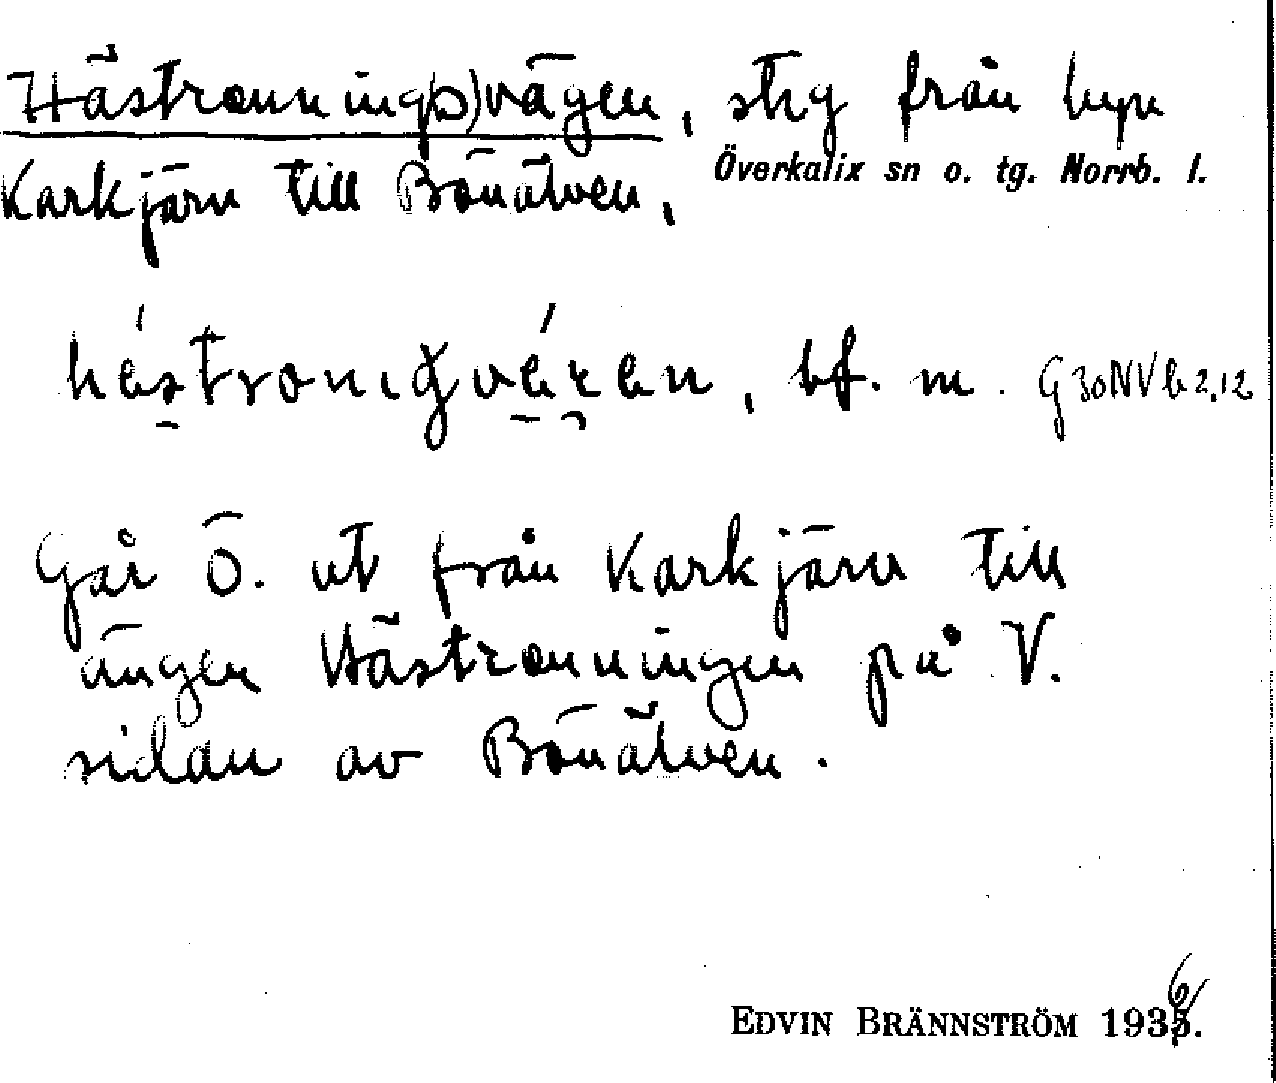 Hästronning(s)vägen, stig från byn
Karkjärn till Bönälven,
Överkalix sn o. tg. Norrb. l.
hästronigvären, bf. m. G30NVb2,12
Går Ö. ut från Karkjärn till
ängen Hästronningen på V.
sidan av Bönälven.
EDVIN BRÄNNSTRÖM 1936.